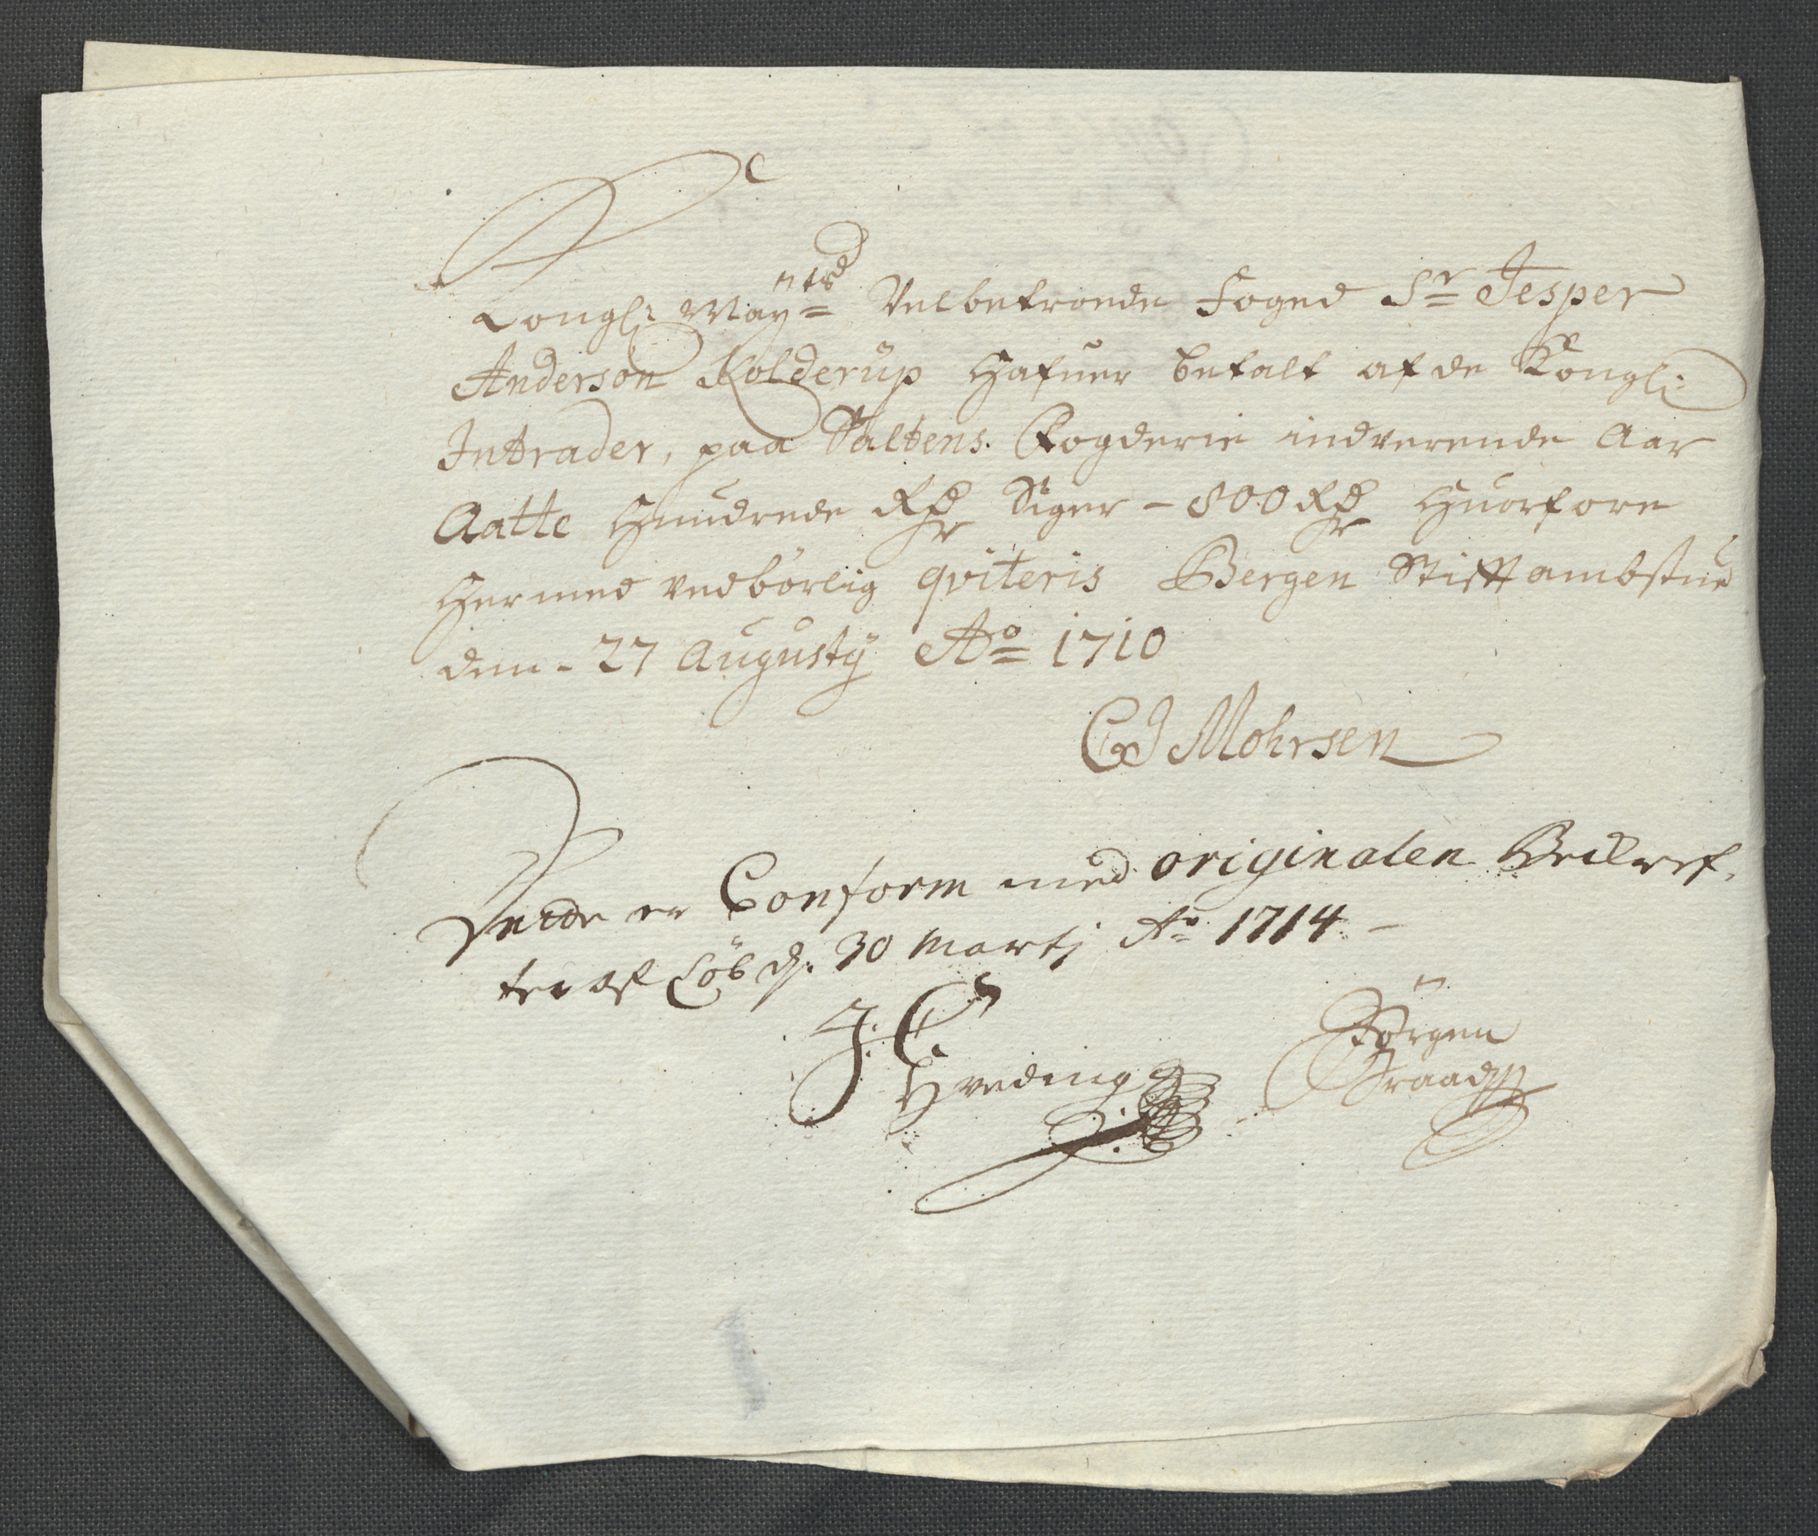 Kongl: May:ts Velbetroede Foged Sr Jesper
Anderson Kolderup Hafuer betalt af de Kongl:
Intrader, paa Saltens Fogderie indverende Aar
Aatte Hundrede Rdr Siger - 800 Rdr Huorfore
Hermed vedbörlig qviteris Bergen Stiftambstue
den - 27 Augustij Ao 1710
CJ Mohrsen
Dette er Conform med originalen Bekref,
tes af Löb d. 30 Martj Ao 1714 -
J. C. Hveding
Jörgen
Graad